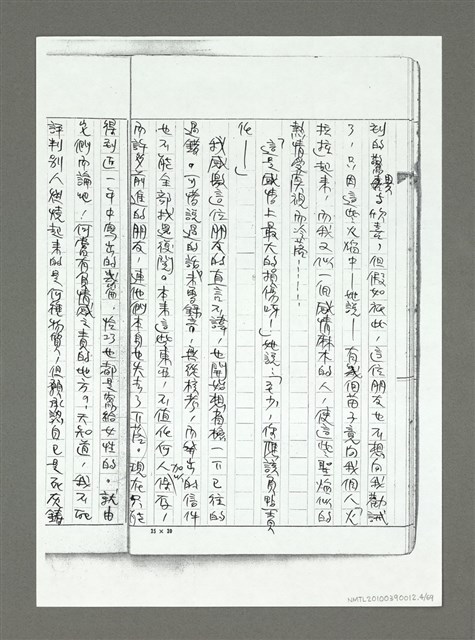 到的驚異與欣喜，但假如祇此，這位朋友也不想向我勸誡
了，只因這些火焰中——她說——有幾個苗子竟向我個人「火」
拉拉起來，而我又似一個感情麻木的人，使這些聖焰似的
熱情受漠視而冷落………
「這是感情上最大的損傷呀！」她說：「至少，你應該負點責
任——」
我感激這位朋友的直言不諱，也開始想檢查一下已往的
過錯。可惜說過的話未曾錄音，無從核考，而寄出的信件
也不能全部找過複閱。本來這些東西，不值任何人保存，
而許多前進的朋友，連他們本身也失去了下落。現在只能
得到近一年中寫出的幾篇，恰巧也都是寫給女性的。就由
它們而論吧，何嘗有負情感之責的地方？天知道，我不能
評判別人燃燒起來的是何種物質，但願承認自己是死灰鑄
25 × 20
NMTL20100390012.4/69